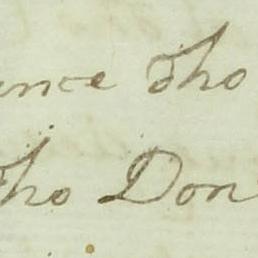 ance Tho
Tho Don